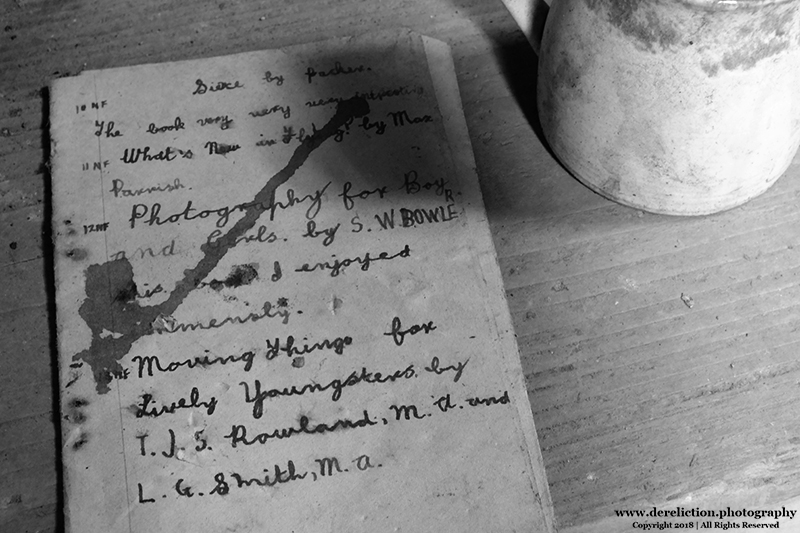 10 NF by packer.
The book very very very interesting
11 NF What's New in Flying? by Max
Parrish.
12 NF Photography for Boy
and Girls. by S. W. BOWLER.
his book I enjoyed
immensly.
NF Moving Things for
Lively Youngsters. by
T. J. S. Rowland, M. A. and
L. G. Smith, M. A.
www.dereliction.photography
Copyright 2018 | All Rights Reserved